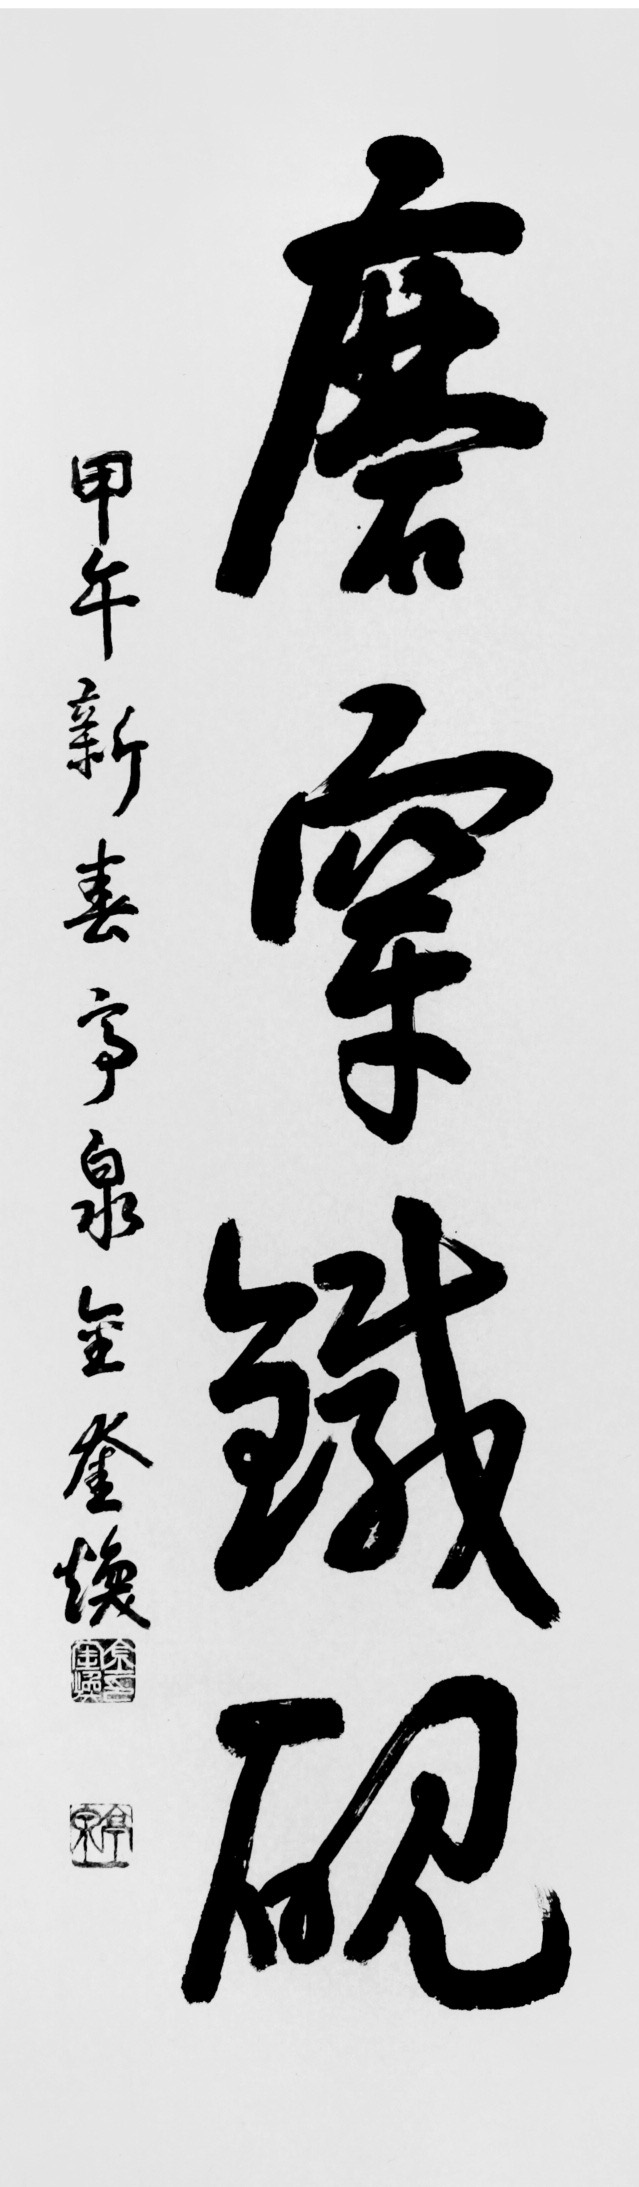 磨穿鐵硯
甲午新春亭泉金奎煥